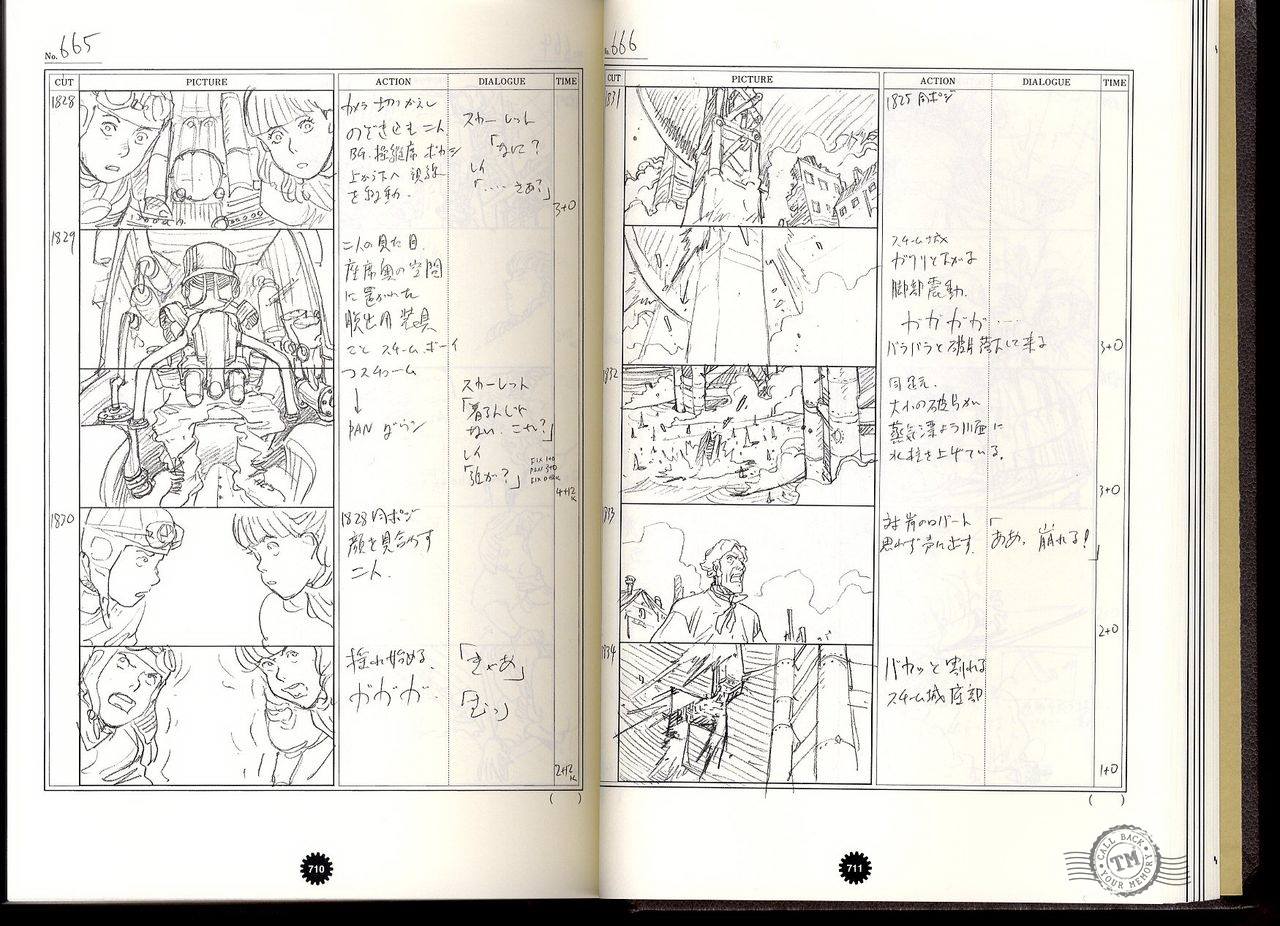 No. 665
CUT PICTURE ACTION DIALOGUE TIME
1828
カメラ切りかえし
のぞき込む二人
BG.操縦席 ボカシ
上から下へ 視線
を移動.
スカーレット
「なに?
レイ
「…… さあ?」
3+0
1829
二人の見た目.
座席奥の空間
に置かれた
脱出用 装具
こと スチームボーイ
コスチューム
↓
PAN ダウン
スカーレット
「着るんじゃ
ない. これ?」
レイ
「誰が?」
4+12
K
1830
1828 同ポジ
顔を見合わす
二人.
揺れ始める.
ガガガ.
「きゃあ」
「むっ」
2+12
K
( )
710
No. 666
CUT PICTURE ACTION DIALOGUE TIME
1831
1825 同ポジ
スチーム城
ガクリと下がる
脚部 震動.
ガガガガ……
バラバラと破片 落下して来る
3+0
1832
同 足元.
大小の破片が
蒸気漂よう川面に
水柱を上げている.
3+0
1833
対岸のロバート
思わず 声に出す.
「ああ, 崩れる!」
2+0
1834
バカッと割れる
スチーム城 底部
1+0
( )
711
CALL BACK
TM
YOUR MEMORY